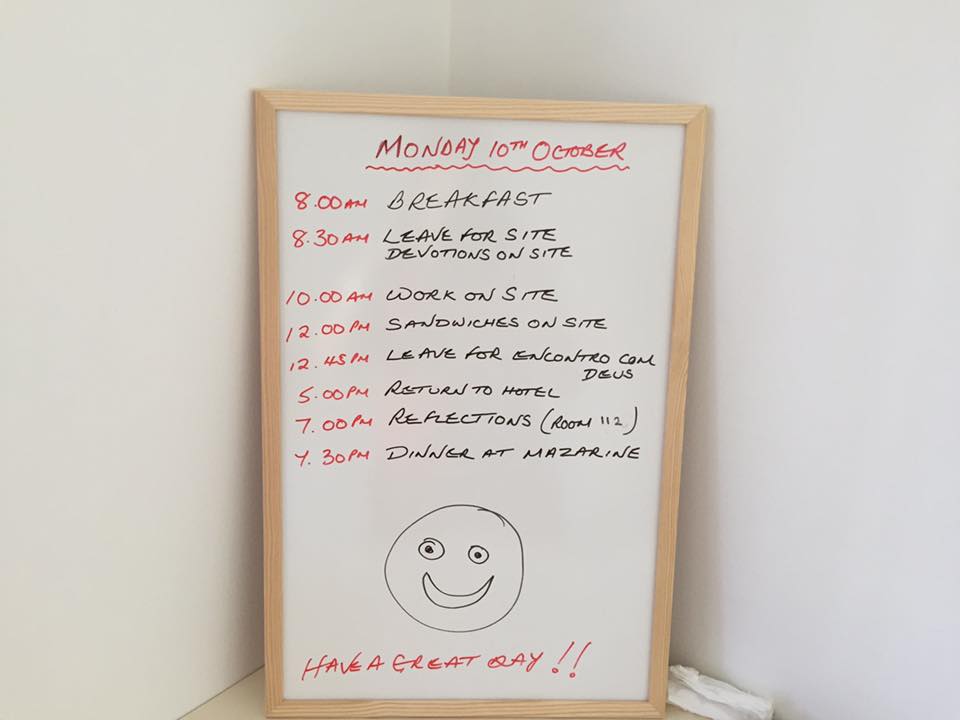 MONDAY 10TH OCTOBER
8.00AM BREAKFAST
8.30AM LEAVE FOR SITE
DEVOTIONS ON SITE
10.00AM WORK ON SITE
12.00PM SANDWICHES ON SITE
12.45PM LEAVE FOR ENCONTRO COM
DEUS
5.00PM RETURN TO HOTEL
7.00PM REFLECTIONS (ROOM 112)
7.30PM DINNER AT MAZARINE
HAVE A GREAT DAY!!